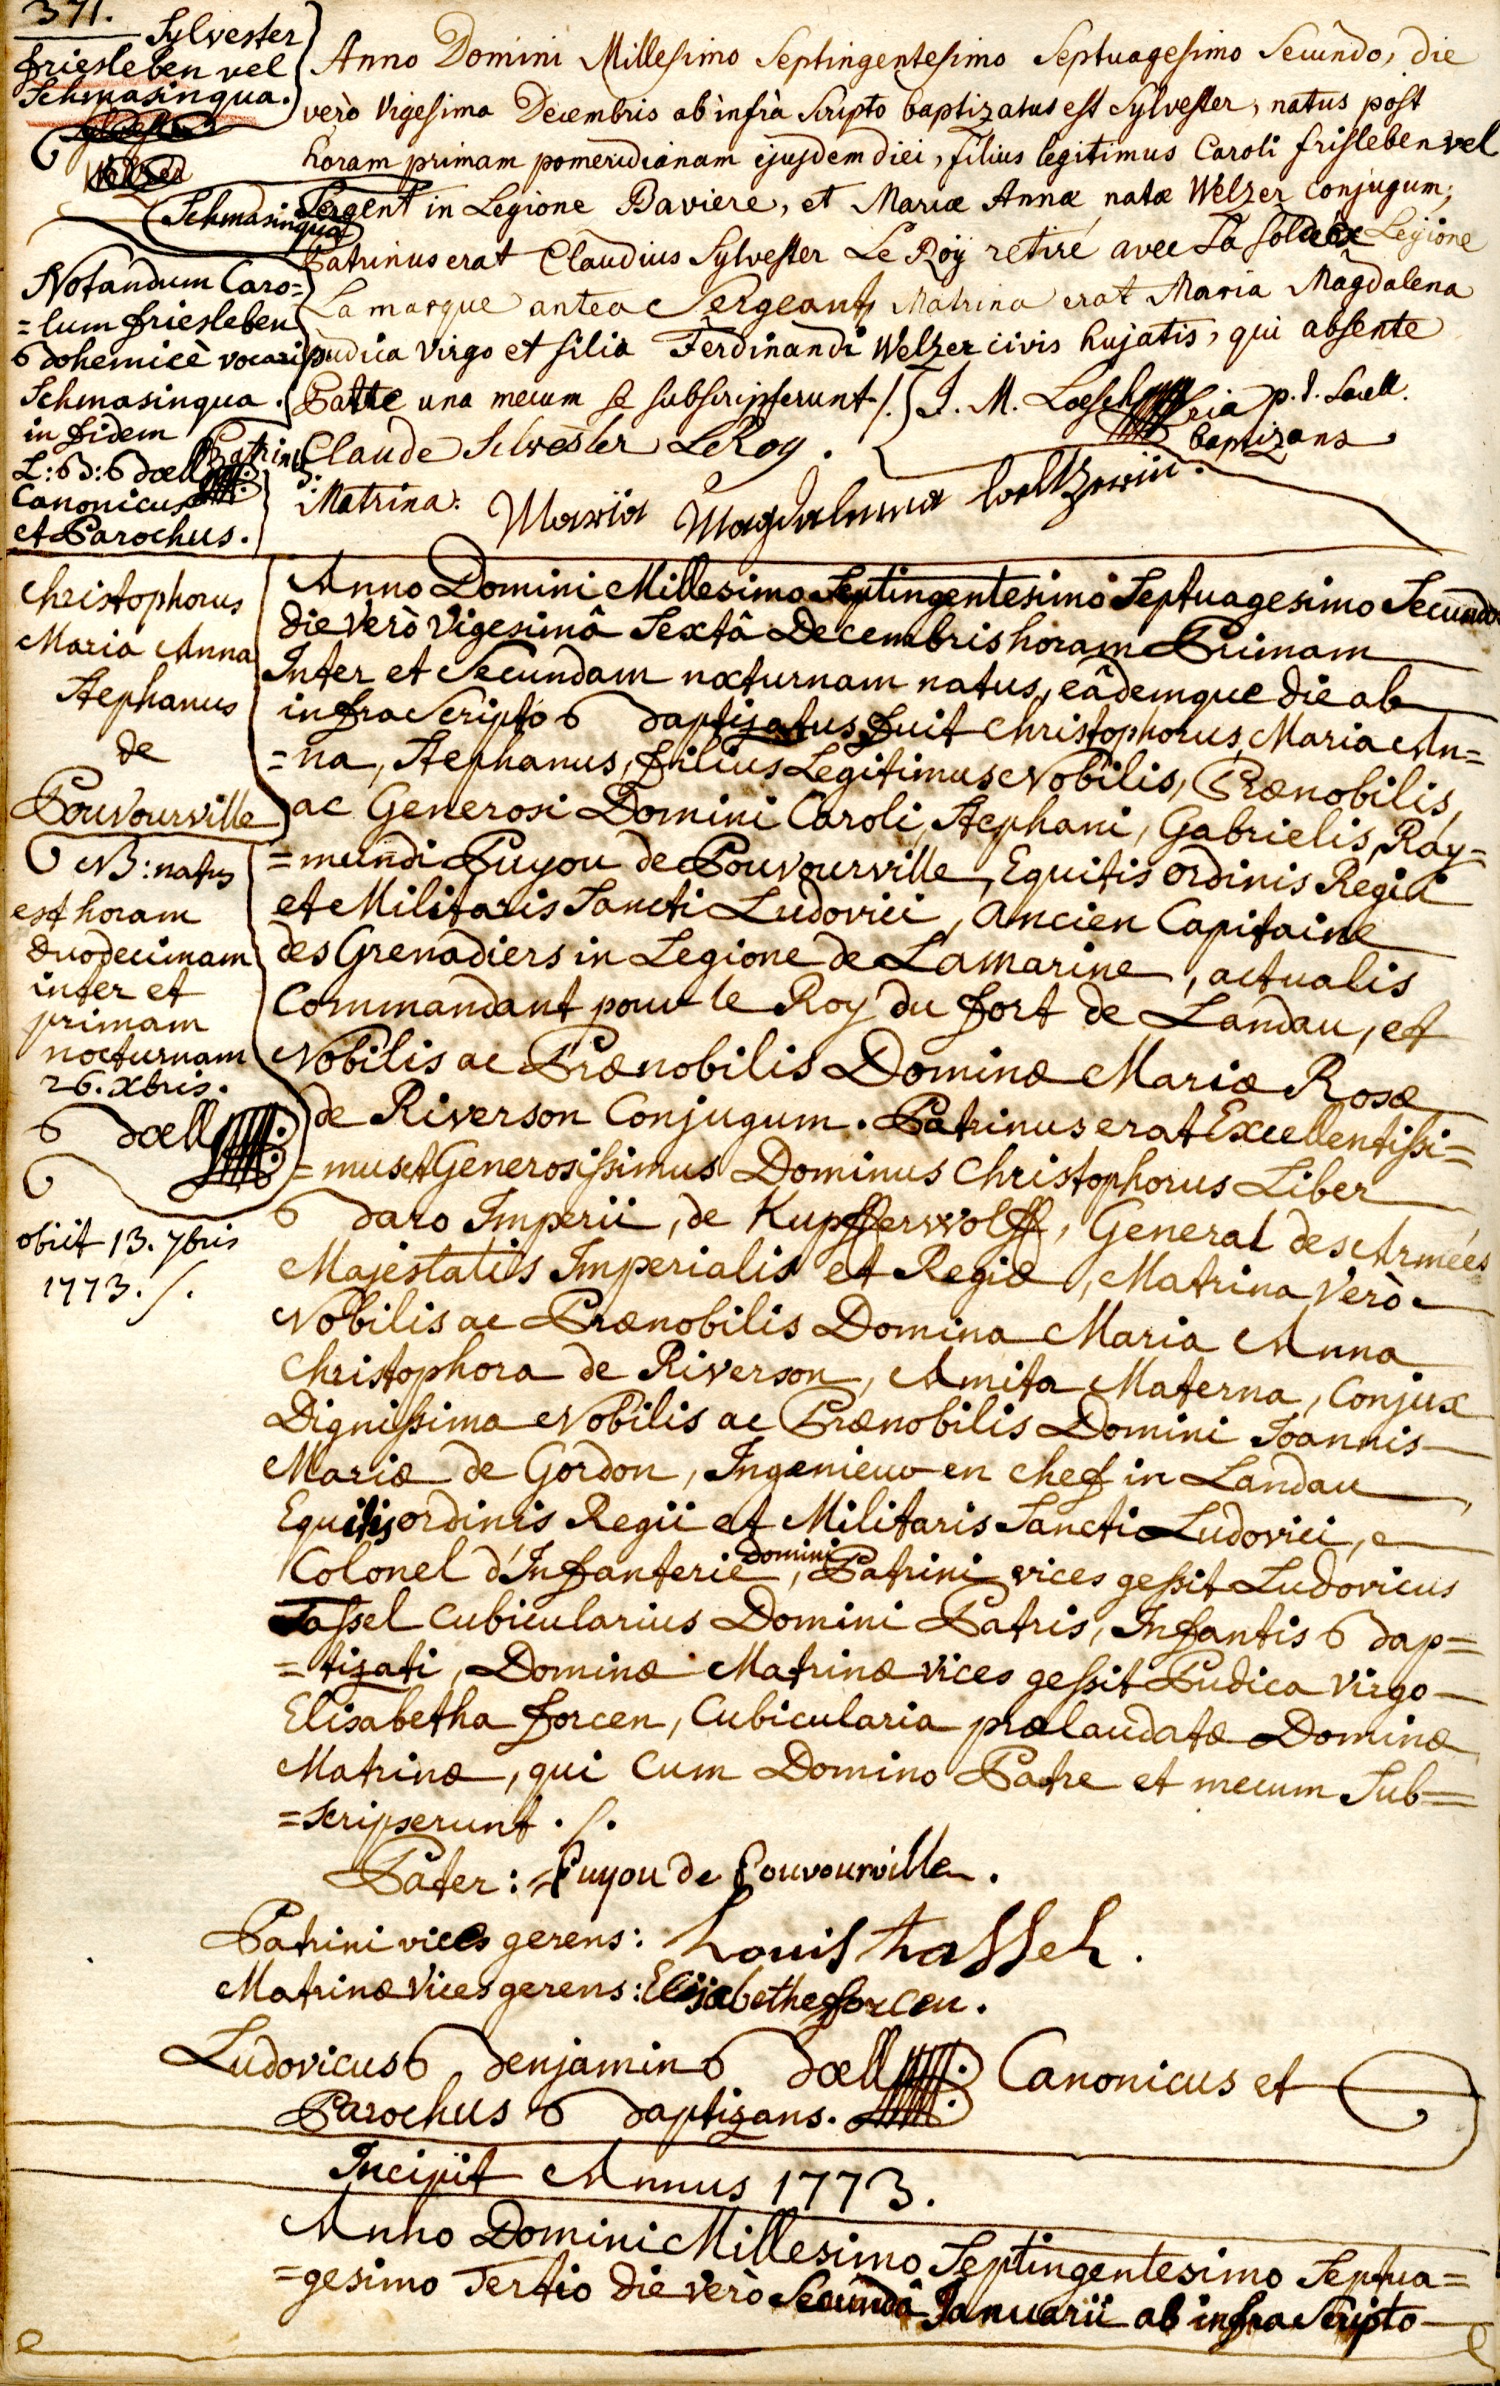 371.
Sylvester
friesleben vel
Schmasinqua.
Schmasinqua
Notandum Caro=
=lum friesleben
bohemicè vocari
Schmasinqua.
in fidem
L: B: Boell
Canonicus
et Parochus.
Anno Domini Millesimo Septingentesimo Septuagesimo Secundo, die
verò Vigesima Decembris ab infrà Scripto baptizatus est Sylvester, natus post
horam primam pomeridianam ejusdem diei, filius legitimus Caroli frisleben vel
Sergent in Legione Baviere, et Mariæ Annæ natæ Welzer conjugum;
Patrinus erat Claudius Sylvester Le Roy retiré avec La solde Legione
La marque antea Sergeant, Matrina erat Maria Magdalena
pudica virgo et filia Ferdinandi Welzer civis hujatis, qui absente
Patre una mecum se subscripserunt /. J. M. Loesch p. t. Sacell.
baptizans
Patrinus Claude Silvester LeRoy.
Matrina: Maria Magdalena Weltzerin.
Christophorus
Maria Anna
Stephanus
de
Pouvourville
NB: natus
est horam
duodecimam
inter et
primam
nocturnam
26. Xbris.
Boell
obiit 13. 7bris
1773. /.
Anno Domini Millesimo Septingentesimo Septuagesimo Secundo
die verò Vigesimâ Sextâ Decembris horam Primam
Inter et Secundam nocturnam natus, eâdemque die ab
infra Scripto Baptizatus fuit Christophorus, Maria An=
=na, Stephanus, filius Legitimus Nobilis, Prænobilis,
ac Generosi Domini Caroli, Stephani, Gabrielis, Ray=
=mundi Puyou de Pouvourville, Equitis ordinis Regii
et Militaris Sancti Ludovici, Ancien Capitaine
des Grenadiers in Legione de Lamarine, actualis
Commandant pour le Roy du fort de Landau, et
Nobilis ac Prænobilis Dominæ Mariæ Rosæ
de Riverson Conjugum. Patrinus erat Excellentissi=
=mus et Generosissimus Dominus Christophorus Liber
Baro Imperii, de Kupfferwolff, General des Armées
Majestatis Imperialis et Regiæ, Matrina Verò
Nobilis ac Prænobilis Domina Maria Anna
Christophora de Riverson, Amita Materna, Conjux
Dignissima Nobilis ac Prænobilis Domini Joannis
Mariæ de Gordon, Ingenieur en chef in Landau
Equitis ordinis Regii et Militaris Sancti Ludovici,
Colonel d'Infanterie, Domini Patrini vices gessit Ludovicus
Tassel Cubicularius Domini Patris, Infantis Bap=
=tizati, Dominæ Matrinæ vices gessit Pudica Virgo
Elisabetha Forcen, Cubicularia prælaudatæ Dominæ
Matrinæ, qui Cum Domino Patre et mecum Sub=
=scripserunt. /.
Pater: Puyou de Pouvourville.
Patrini vices gerens: Louis tassel.
Matrinæ Vices gerens: Elisabethe forcen.
Ludovicus Benjamin Boell Canonicus et
Parochus Baptizans.
Incipit Annus 1773.
Anno Domini Millesimo Septingentesimo Septua=
=gesimo Tertio die verò Secundâ Januarii ab infra Scripto